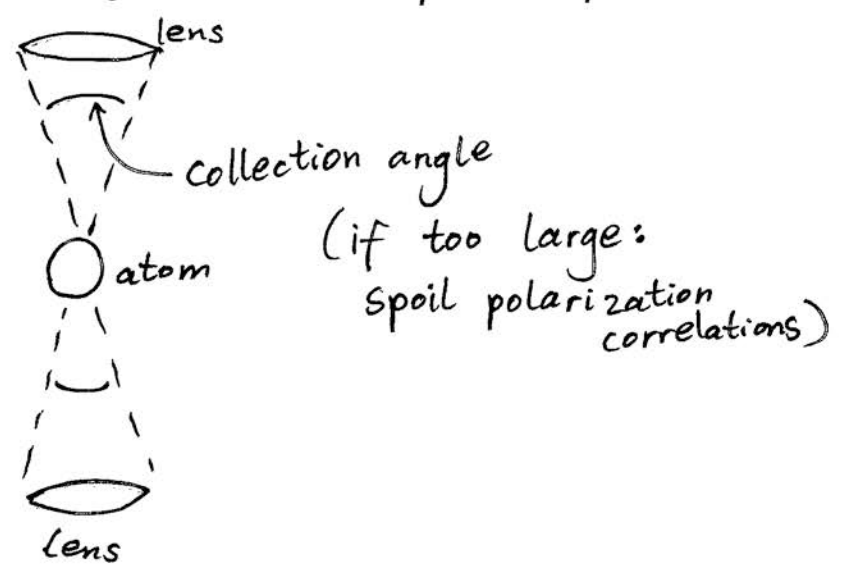 lens
collection angle
(if too large:
atom
spoil polarization
correlations)
lens